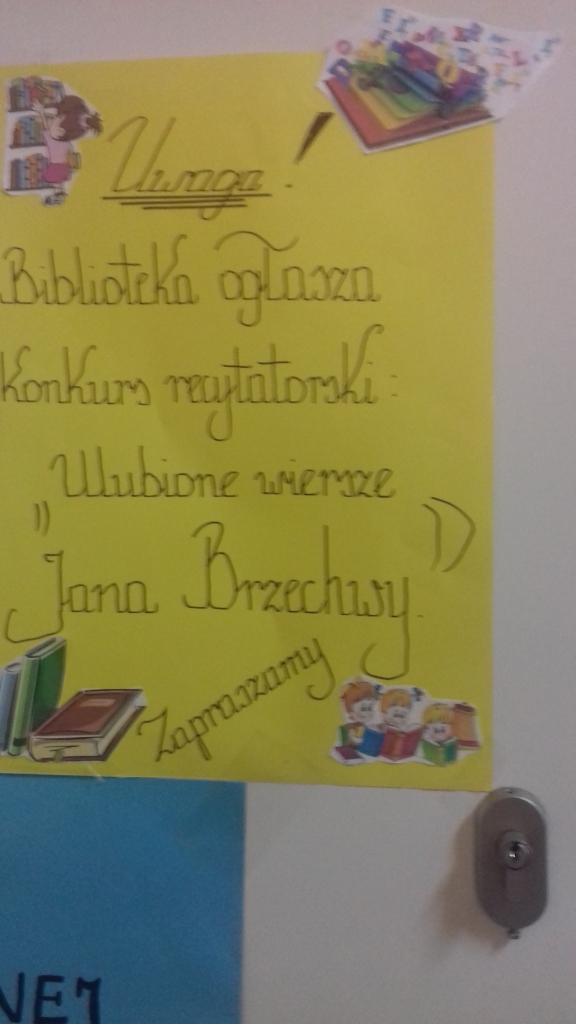 Uwaga!
Biblioteka ogłasza
Konkurs recytatorski:
„Ulubione wiersze
Jana Brzechwy."
Zapraszamy
NEJ